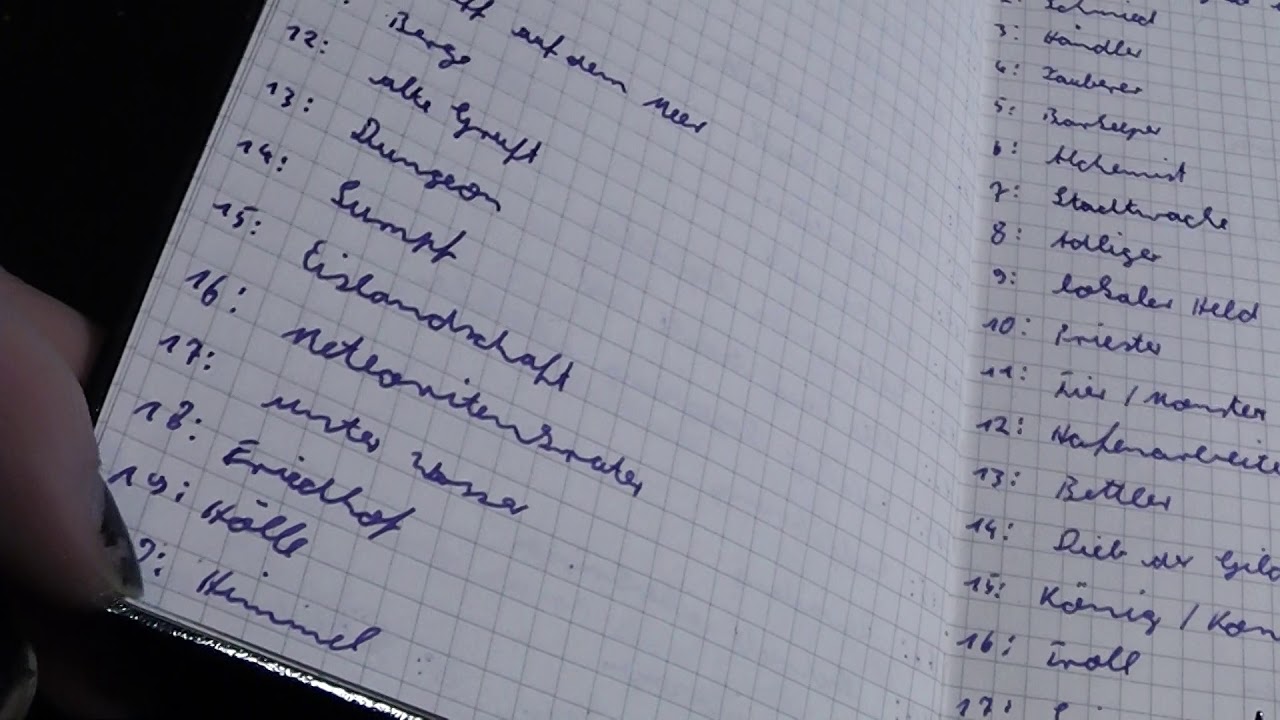 auf dem Meer
Berge
12: alte Gruft
13: Dungeon
14: Sumpf
15: Eislandschaft
16: Meteoritenkrater
17: unter Wasser
18: Friedhof
19: Hölle
Himmel
Schmied
3: Händler
4: Zauberer
5: Barkeeper
6: Alchemist
7: Stadtwache
8: Adliger
9: lokaler Held
10: Priester
11: Tier / Monster
12: Hafenarbeite
13: Bettler
14: Dieb der Gild
15: König / Kön
16: Troll
17: